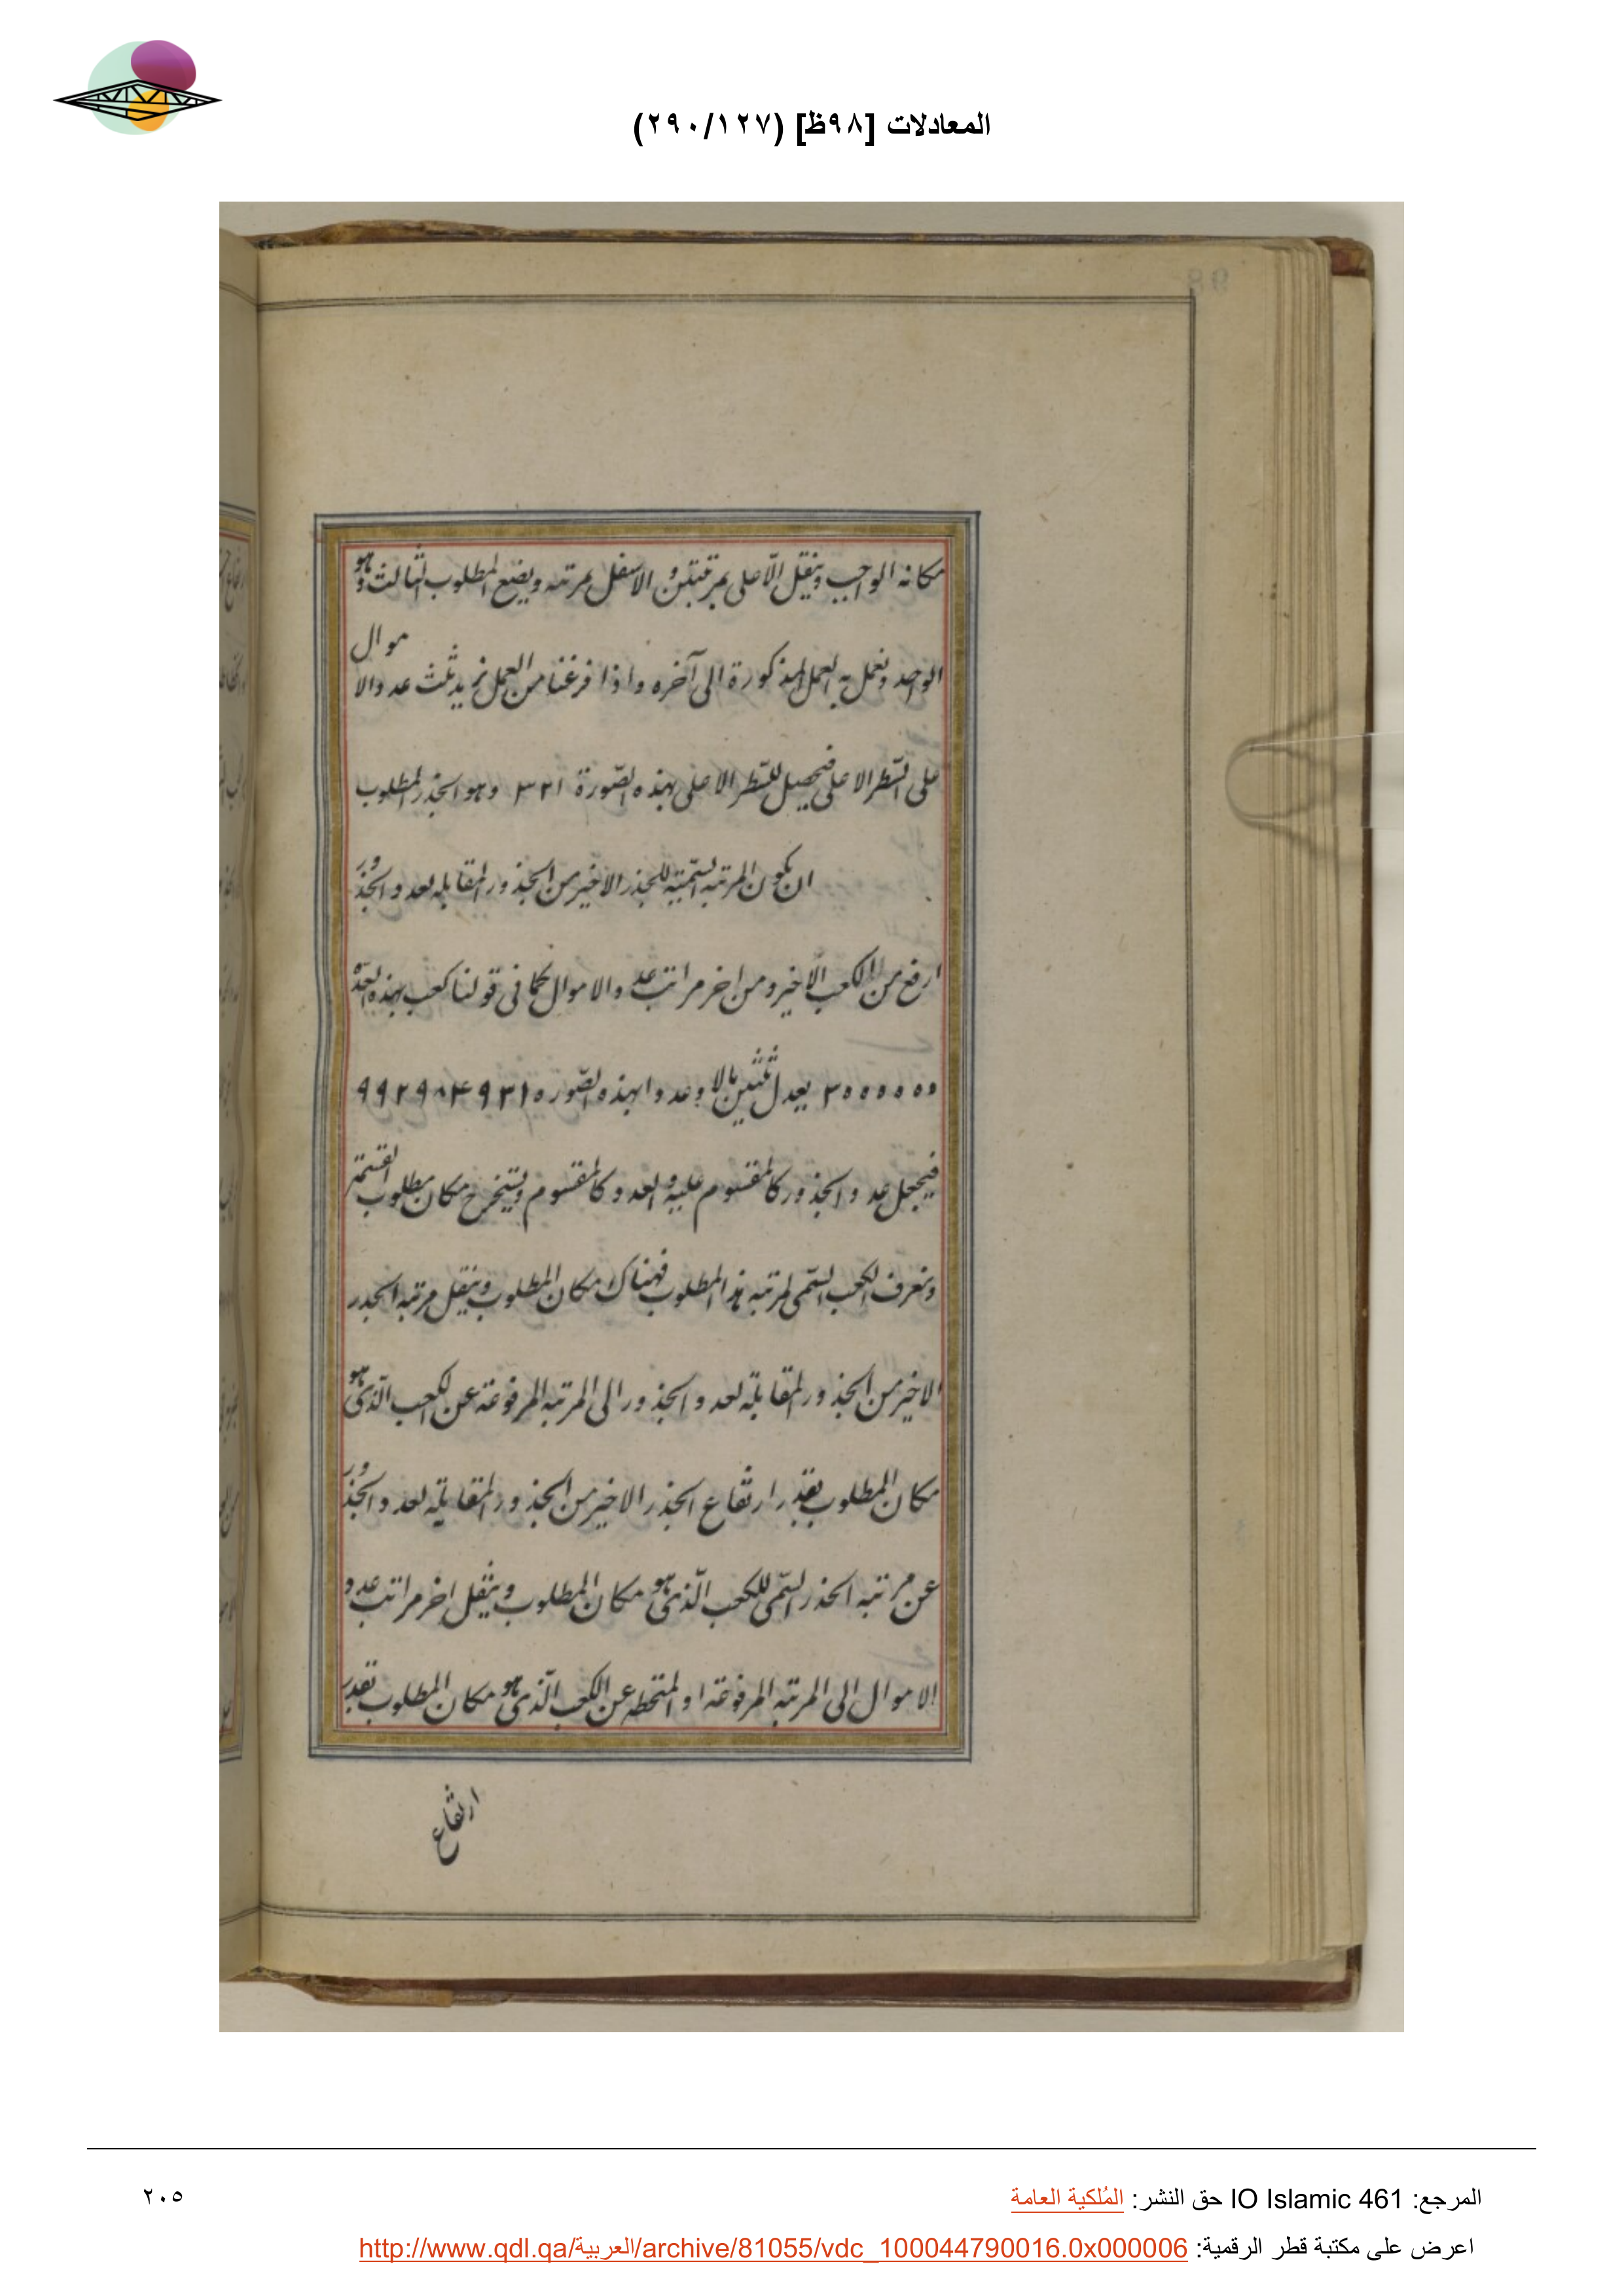 المعادلات [٩٨ظ] (٢٩٠/١٢٧)
مكانه الواجب وينقل الاعلى بمرتبتين والاسفل بمرتبه ويضع المطلوب الثالث وهو
الواحد ونعمل به العمل المذكورة الى آخره واذا فرغنا من العمل نزيد ثلث عدد الاموال
على السّطر الاعلى فيحصل للسّطر الاعلى بهذه الصّورة ٣٢١ وهو الجذر المطلوب
ان يكون المرتبه السّميّة للجذر الاخير من الجذور المقابله لعدد الجذور
ارفع من الكعب الاخير ومن اخر مراتب عدد الاموال كما في قولنا كعب بهذه العدّة
٣٠٠٠٠٠٠ يعدل وعددا بهذه الصّوره ٩٩٢٩٨٤٩٣١
فيجعل عدد الجذور كالمقسوم عليه والعدد كالمقسوم ويستخرج مكان مطلوب القسمة
ونعرف الكعب السّمى لمرتبه هذا المطلوب فهناك مكان المطلوب وينقل مرتبه الجذر
الاخير من الجذور المقابلة لعدد الجذور الى المرتبه المرفوعة عن الكعب الّذى هو
مكان المطلوب بقدر ارتفاع الجذر الاخير من الجذور المقابلة لعدد الجذور
عن مرتبه الجذر السّمى للكعب الّذى هو مكان المطلوب وينقل اخر مراتب عدد
الاموال الى المرتبه المرفوعة او المنحطه عن الكعب الّذى هو مكان المطلوب بقدر
ارتفاع
المرجع: IO Islamic 461 حق النشر: المُلكية العامة
٢٠٥
اعرض على مكتبة قطر الرقمية: http://www.qdl.qa/العربية/archive/81055/vdc_100044790016.0x000006